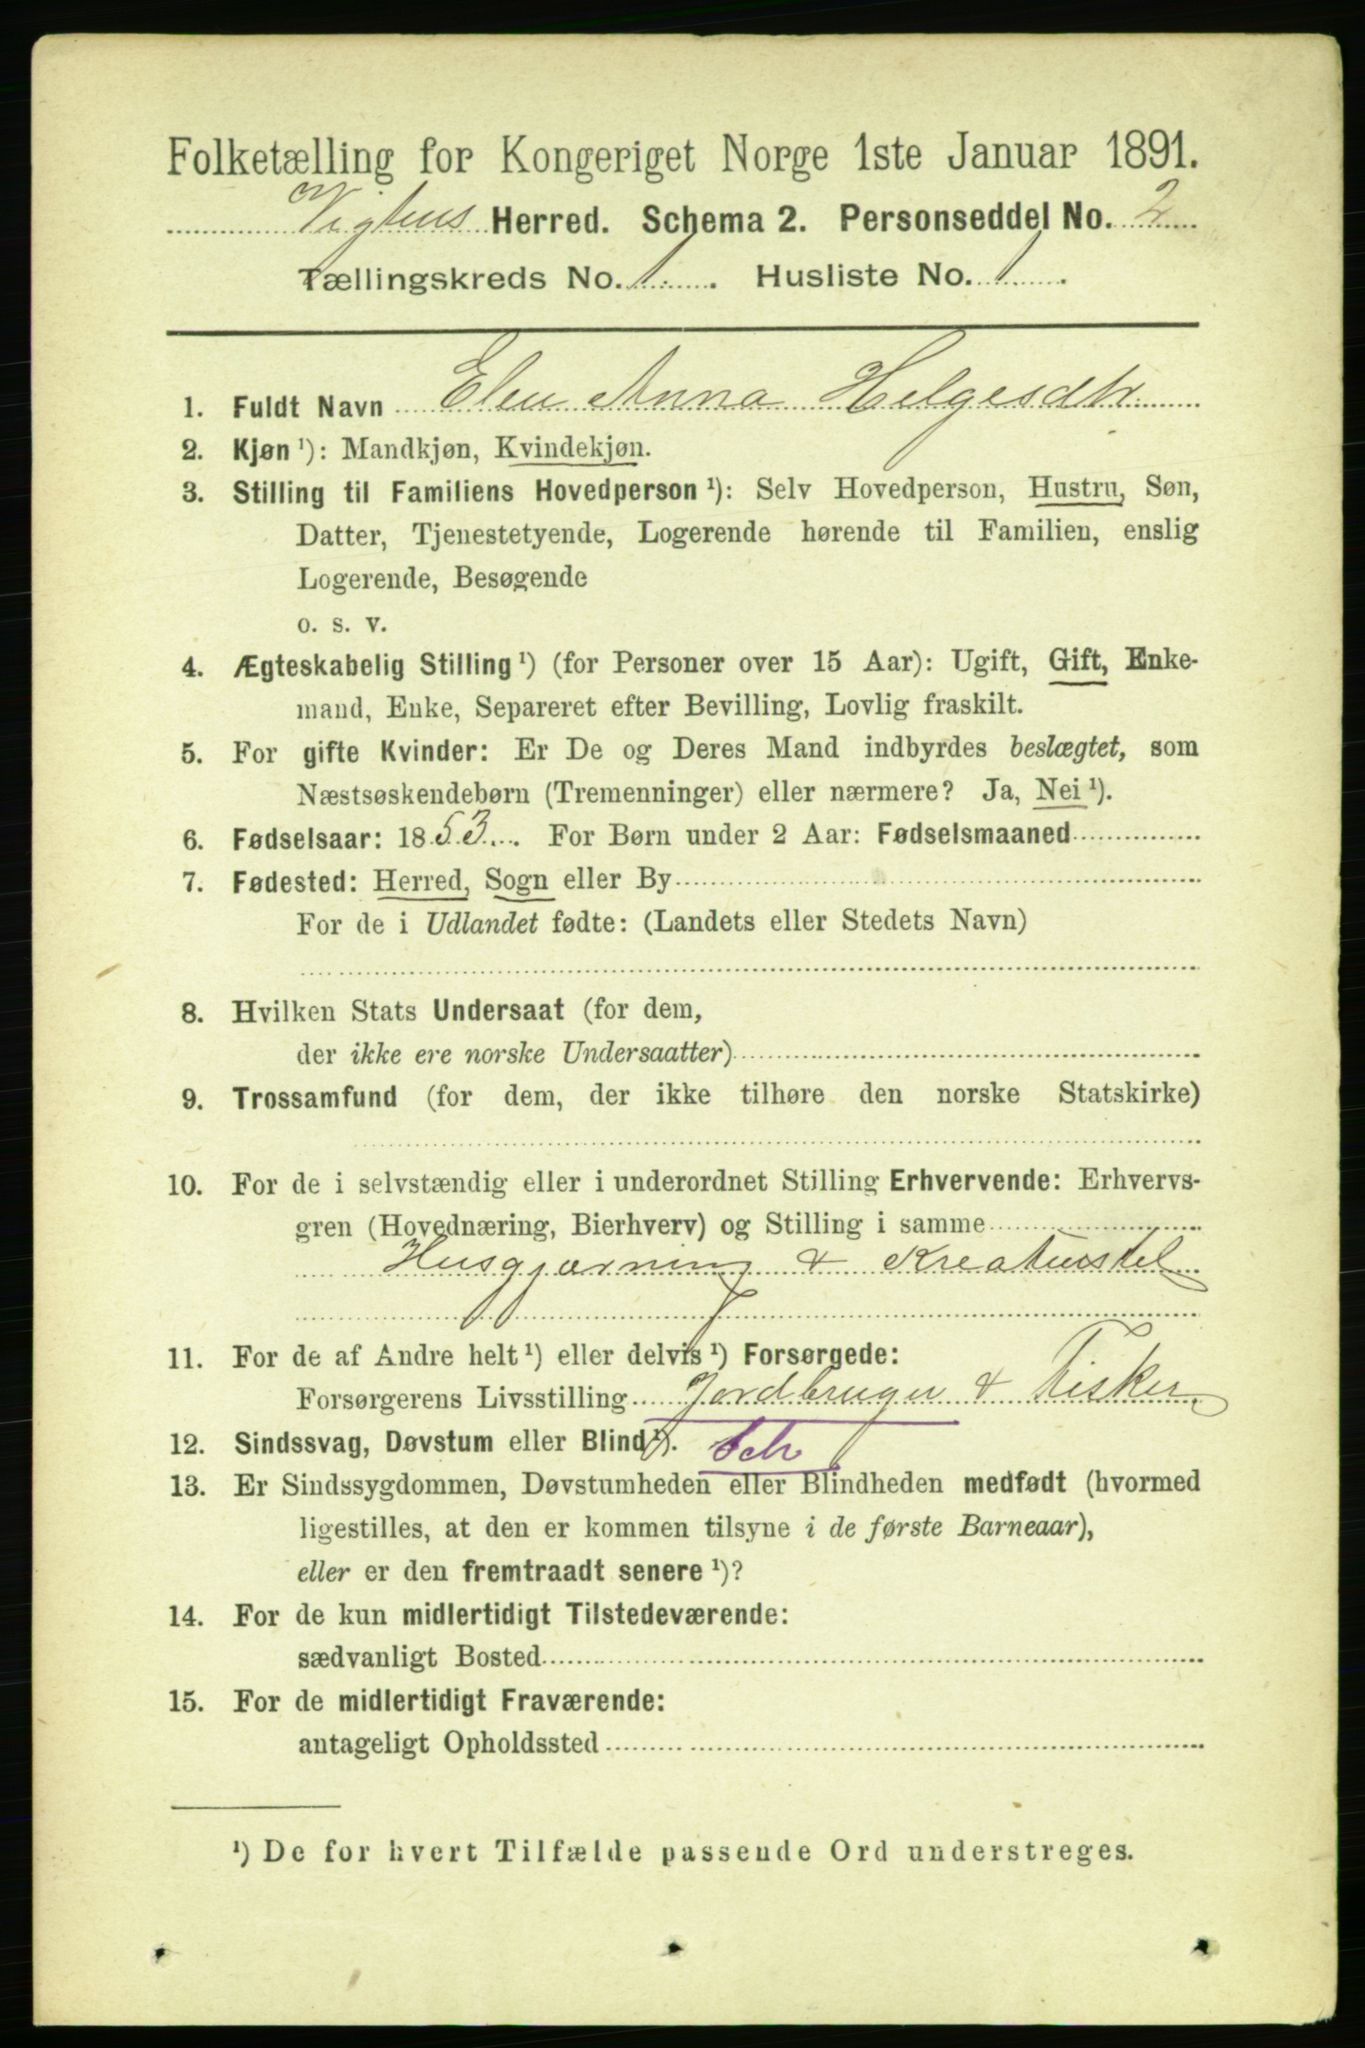 Folketælling for Kongeriget Norge 1ste Januar 1891.
Vigtens Herred. Schema 2. Personseddel No. 2
Tællingskreds No. 1. Husliste No. 1.
1. Fuldt Navn Elen Anna Helgesdtr.
2. Kjøn ¹): Mandkjøn, Kvindekjøn.
3. Stilling til Familiens Hovedperson ¹): Selv Hovedperson, Hustru, Søn,
Datter, Tjenestetyende, Logerende hørende til Familien, enslig
Logerende, Besøgende
o. s. v.
4. Ægteskabelig Stilling ¹) (for Personer over 15 Aar): Ugift, Gift, Enke-
mand, Enke, Separeret efter Bevilling, Lovlig fraskilt.
5. For gifte Kvinder: Er De og Deres Mand indbyrdes beslægtet, som
Næstsøskendebørn (Tremenninger) eller nærmere? Ja, Nei ¹).
6. Fødselsaar: 1853. For Børn under 2 Aar: Fødselsmaaned
7. Fødested: Herred, Sogn eller By
For de i Udlandet fødte: (Landets eller Stedets Navn)
8. Hvilken Stats Undersaat (for dem,
der ikke ere norske Undersaatter)
9. Trossamfund (for dem, der ikke tilhøre den norske Statskirke)
10. For de i selvstændig eller i underordnet Stilling Erhvervende: Erhvervs-
gren (Hovednæring, Bierhverv) og Stilling i samme
Husgjærning & Kreaturstel
11. For de af Andre helt ¹) eller delvis ¹) Forsørgede:
Forsørgerens Livsstilling Jordbruger & Fisker
12. Sindssvag, Døvstum eller Blind ¹).
13. Er Sindssygdommen, Døvstumheden eller Blindheden medfødt (hvormed
ligestilles, at den er kommen tilsyne i de første Barneaar),
eller er den fremtraadt senere ¹)?
14. For de kun midlertidigt Tilstedeværende:
sædvanligt Bosted
15. For de midlertidigt Fraværende:
antageligt Opholdssted
¹) De for hvert Tilfælde passende Ord understreges.